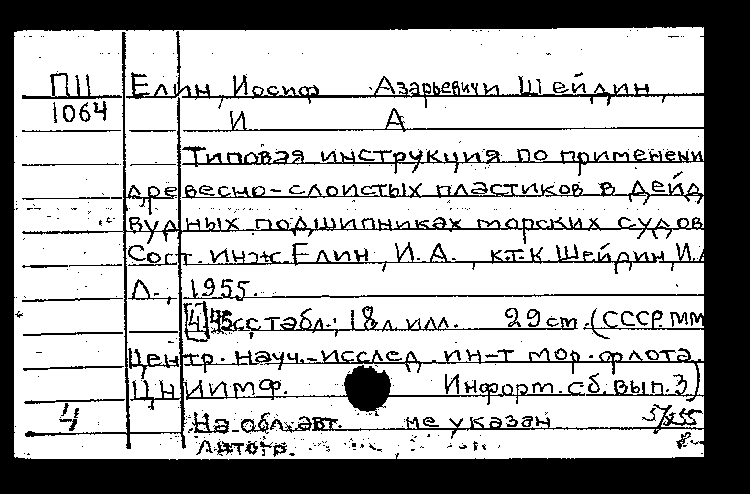 П11 Елин, Иосиф Азарьевич и Шейдин,
1064 И А
Типовая инструкция по применени
древесно-слоистых пластиков в дейд
вудных подшипниках морских судов
Сост. инж. Елин, И. А., к.т.к Шейдин, И.А
Л., 1955.
[4] 45 с с табл.; 18 л илл. 29 см. (СССР. ММ
Центр. науч.-исслед. ин-т мор. флота.
ЦНИИМФ. Информ. сб. вып. 3)
4 На обл. авт. не указан
Автогр.